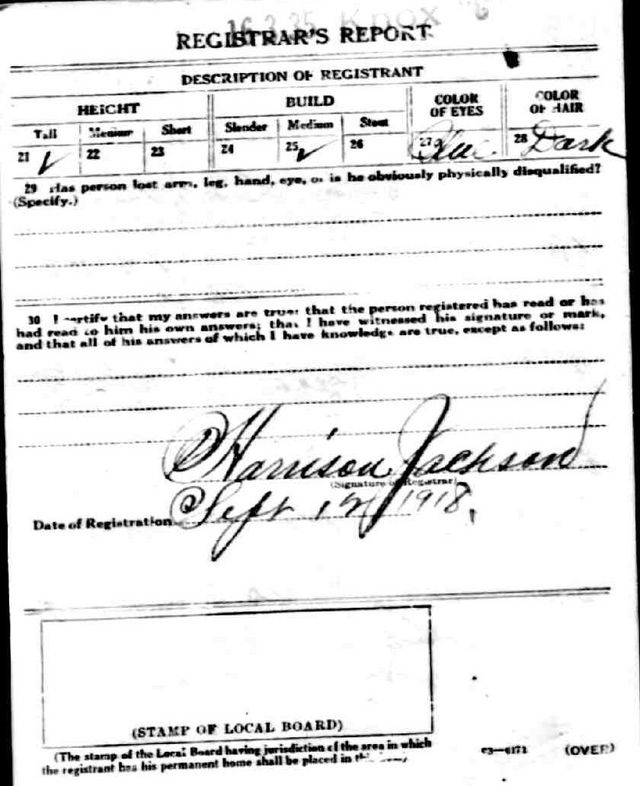 16 3 35 KNOX 6
REGISTRAR'S REPORT
DESCRIPTION OF REGISTRANT
HEIGHT BUILD COLOR OF EYES COLOR OF HAIR
Tall Medium Short Slender Medium Stout
21 ✓ 22 23 24 25 ✓ 26 27 Blue 28 Dark
29 Has person lost arm, leg, hand, eye, or is he obviously physically disqualified?
(Specify.)
30 I certify that my answers are true; that the person registered has read or has
had read to him his own answers; that I have witnessed his signature or mark,
and that all of his answers of which I have knowledge are true, except as follows:
Harrison Jackson
(Signature of Registrar)
Date of Registration Sept 12 1918.
(STAMP OF LOCAL BOARD)
(The stamp of the Local Board having jurisdiction of the area in which
the registrant has his permanent home shall be placed in
03—6171 (OVER)